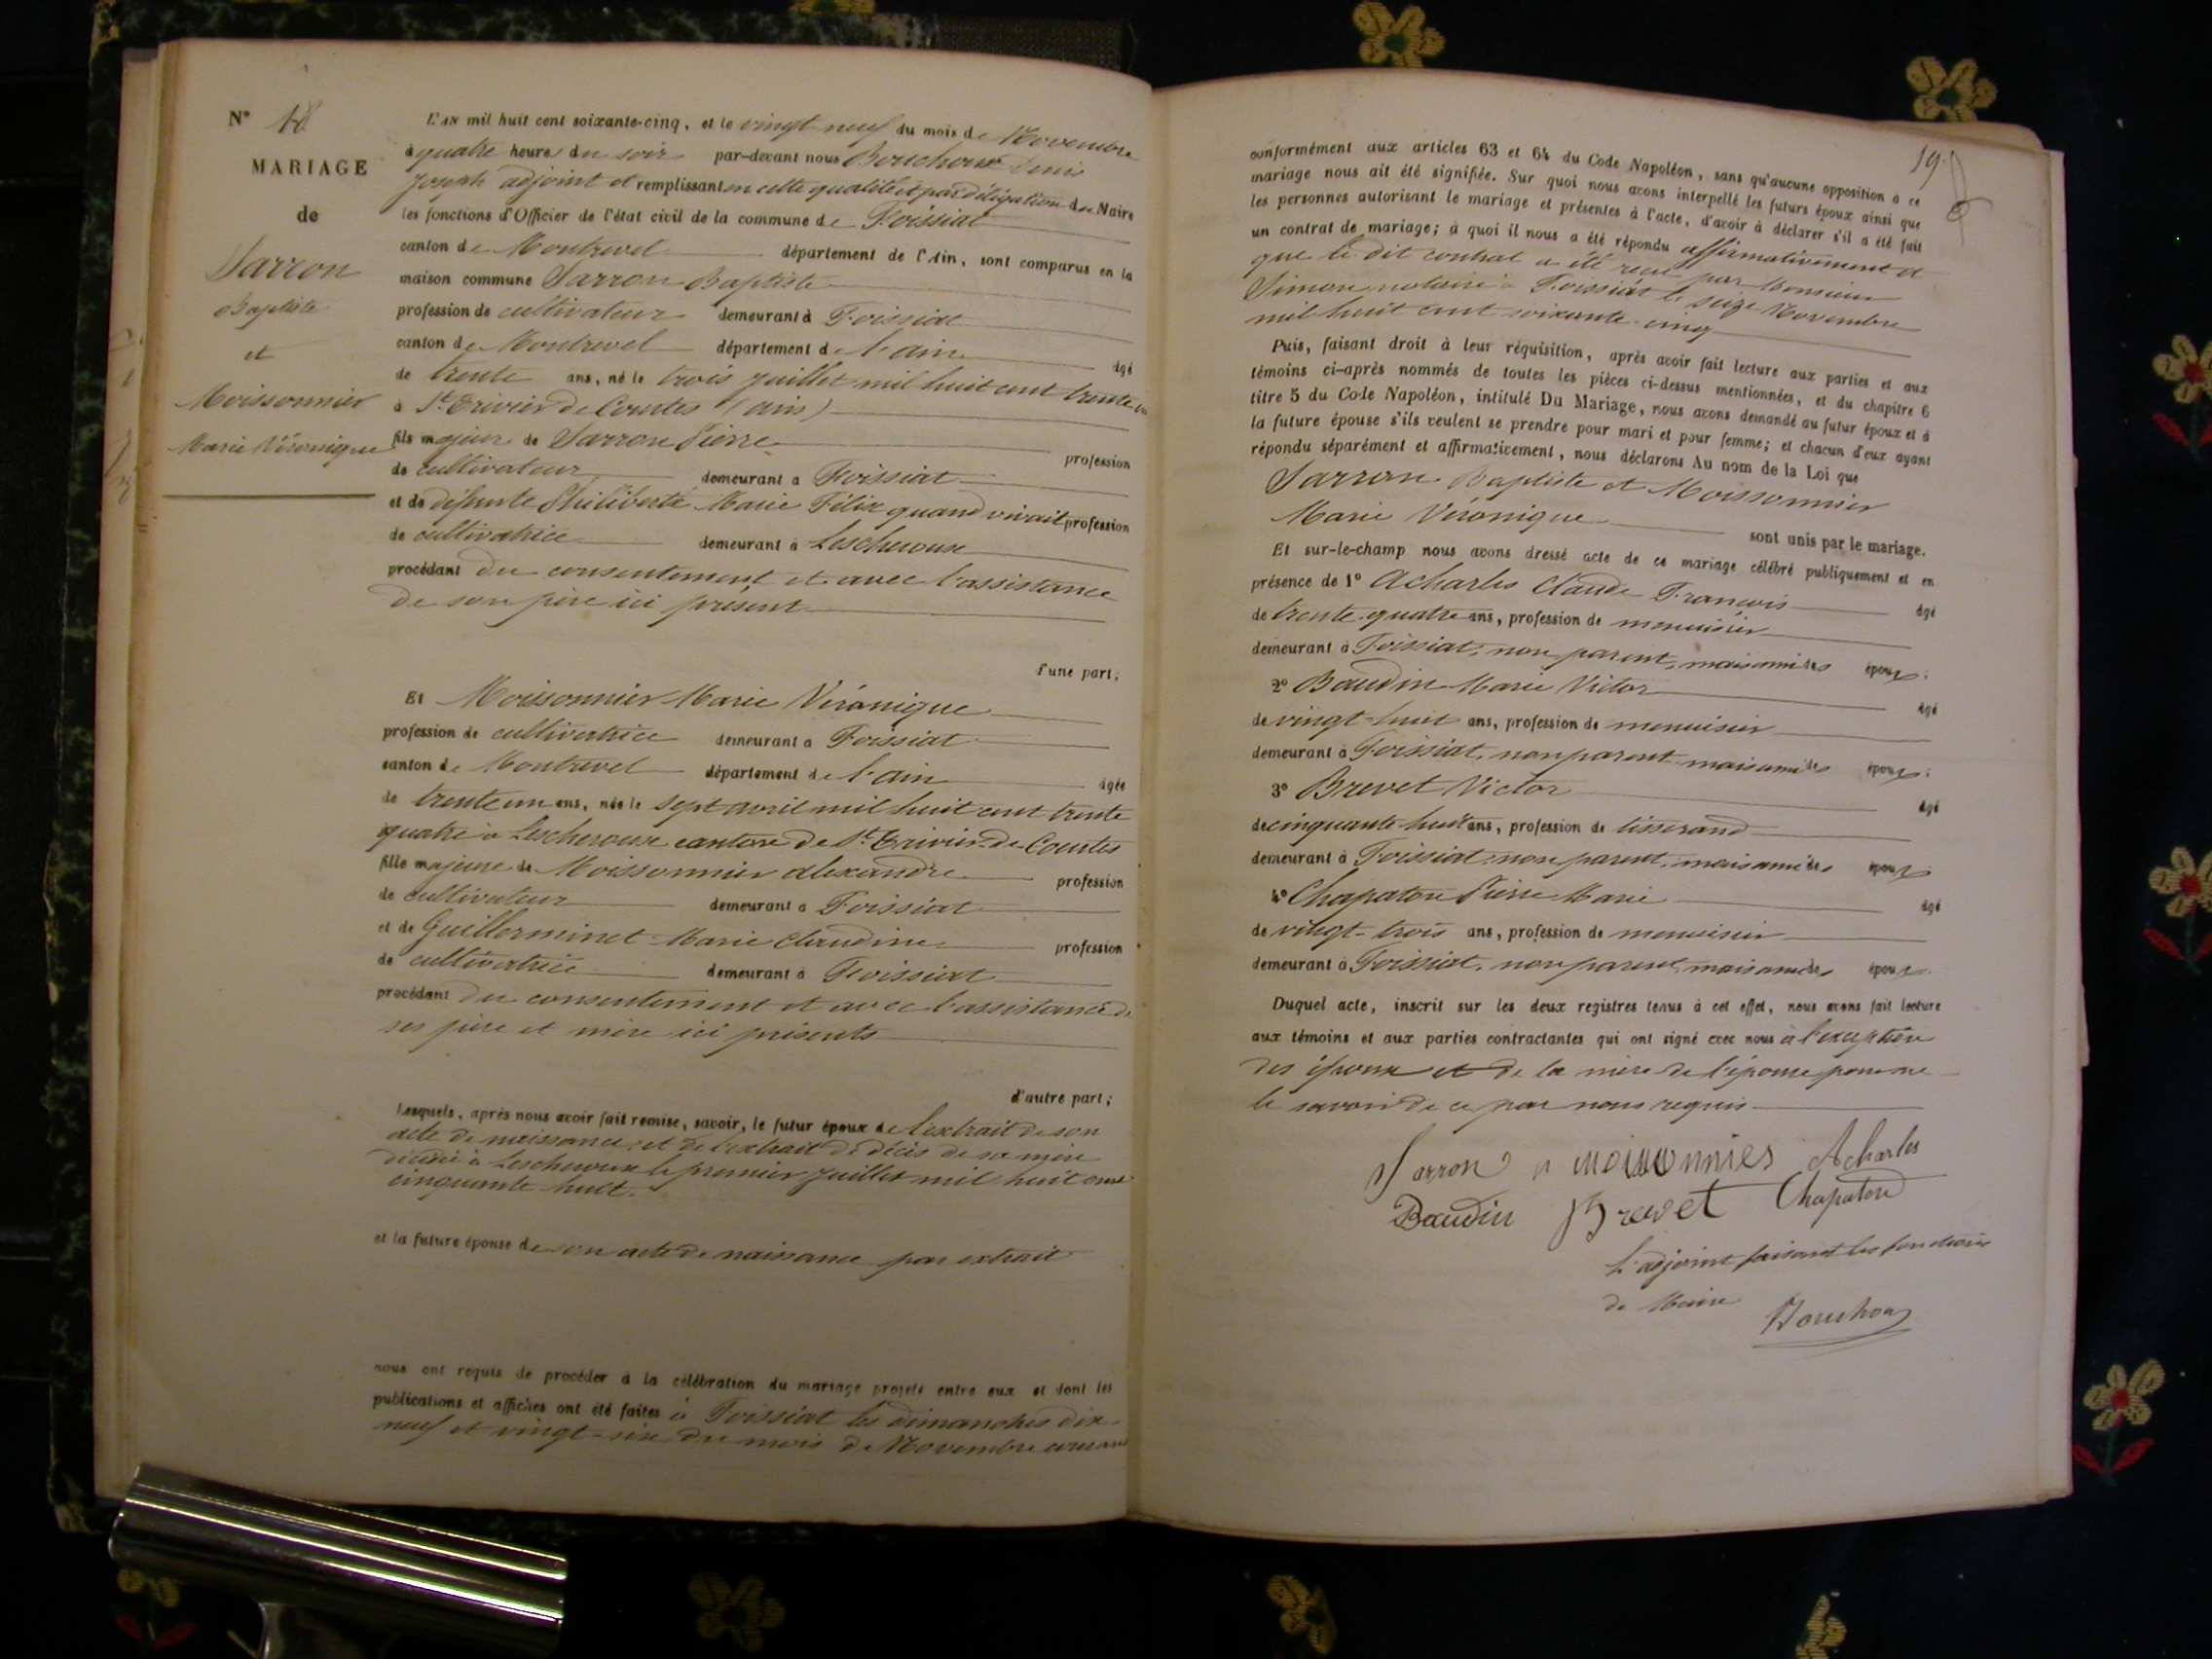 N° 18
MARIAGE
de
Sarron
Baptiste
et
Moissonnier
Marie Véronique
L'AN mil huit cent soixante-cinq, et le vingt-neuf du mois de Novembre
à quatre heure du soir par-devant nous Bouchoux Denis
Joseph adjoint et remplissant en cette qualité et par déligation du Maire
les fonctions d'Officier de l'état civil de la commune de Foissiat
canton de Montrevel département de l'Ain, sont comparus en la
maison commune Sarron Baptiste
profession de cultivateur demeurant à Foissiat
canton de Montrevel département de l'ain âgé
de trente ans, né le trois juillet mil huit cent trente
à St. Trivier de Courtes (ain)
fils majeur de Sarron Pierre profession
de cultivateur demeurant à Foissiat
et de défunte Philiberte Marie Félix quand vivait profession
de cultivatrice demeurant à Lescheroux
procédant du consentement et avec l'assistance
de son père ici présent
d'une part;
Et Moissonnier Marie Véronique
profession de cultivatrice demeurant à Foissiat
canton de Montrevel département de l'ain âgée
de trente un ans, née le sept avril mil huit cent trente
quatre à Lescheroux canton de St. Trivier-de-Courtes
fille majeure de Moissonnier alexandre profession
de cultivateur demeurant à Foissiat
et de Guillerminet Marie Claudine profession
de cultivatrice demeurant à Foissiat
procédant du consentement et avec l'assistance de
ses père et mère ici présents
d'autre part;
Lesquels, après nous avoir fait remise, savoir, le futur époux de l'extrait de son
acte de naissance, et de l'extrait de décès de sa mère
décédé à Lescheroux le premier juillet mil huit cent
cinquante-huit.
et la future épouse de son acte de naissance par extrait
nous ont requis de procéder à la célébration du mariage projeté entre eux et dont les
publications et affiches ont été faites à Foissiat les dimanches dix-
neuf et vingt-six du mois de Novembre courant
19
conformément aux articles 63 et 64 du Code Napoléon, sans qu'aucune opposition à ce
mariage nous ait été signifiée. Sur quoi nous avons interpellé les futurs époux ainsi que
les personnes autorisant le mariage et présentes à l'acte, d'avoir à déclarer s'il a été fait
un contrat de mariage; à quoi il nous a été répondu affirmativement et
que le dit contrat a été reçu par Monsieur
Simon notaire à Foissiat le seize Novembre
mil huit cent soixante-cinq
Puis, faisant droit à leur réquisition, après avoir fait lecture aux parties et aux
témoins ci-après nommés de toutes les pièces ci-dessus mentionnées, et du chapitre 6
titre 5 du Code Napoléon, intitulé Du Mariage, nous avons demandé au futur époux et à
la future épouse s'ils veulent se prendre pour mari et pour femme; et chacun d'eux ayant
répondu séparément et affirmativement, nous déclarons Au nom de la Loi que
Sarron Baptiste et Moissonnier
Marie Véronique sont unis par le mariage.
Et sur-le-champ nous avons dressé acte de ce mariage célébré publiquement et en
présence de 1° Acharles Claude François âgé
de trente-quatre ans, profession de menuisier
demeurant à Foissiat, non parent, mais ami des époux;
2° Baudin Marie Victor âgé
de vingt-huit ans, profession de menuisier
demeurant à Foissiat, non parent mais ami des époux;
3° Brevet Victor âgé
de cinquante huit ans, profession de tisserand
demeurant à Foissiat, non parent, mais ami des époux
4° Chapaton Pierre Marie âgé
de vingt-trois ans, profession de menuisier
demeurant à Foissiat, non parent, mais ami des époux.
Duquel acte, inscrit sur les deux registres tenus à cet effet, nous avons fait lecture
aux témoins et aux parties contractantes qui ont signé avec nous à l'exception
des époux et de la mère de l'épouse pour ne
le savoir de ce par nous requis
Sarron moissonnies Acharles
Baudin Brevet Chapaton
L'adjoint faisant les fonctions
de Maire Bouchoux